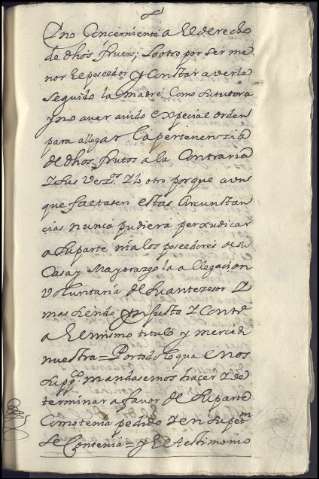 y no Concerniente a El derecho
de dhos frutos; Lo otro por ser me
nor El posehedor y Constar averle
seguido la madre Como su tutora
y no aver avido espezial orden
para allegar la pertenenzia
de dhos frutos a la Contraria
lo otro porque aun
que faltasen estas circunstan
cias nunca pudiera perxudicar
a su parte ni a los poseedores de su
Casa y Mayorazgo la alegazion
voluntaria de su antezesor y
mas siendo injusta y Contra
a El mismo titulo y merced
nuestra = Por todo lo qual nos
supco mandasemos hazer y de
terminar a favor de su parte
Como tenia pedido y en su peton
se Contenia = y El testimonio